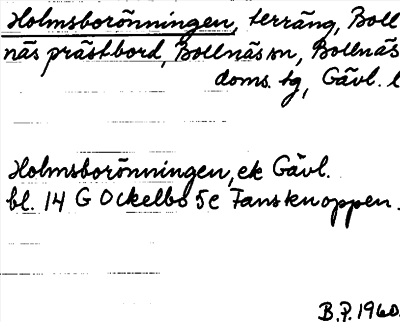 Holmsborönningen, terräng, Boll
näs prästbord, Bollnäs sn, Bollnäs
doms. tg, Gävl. l
Holmsborönningen, ek Gävl.
bl. 14 G Ockelbo 5e Fansknoppen.
B.P. 1960.